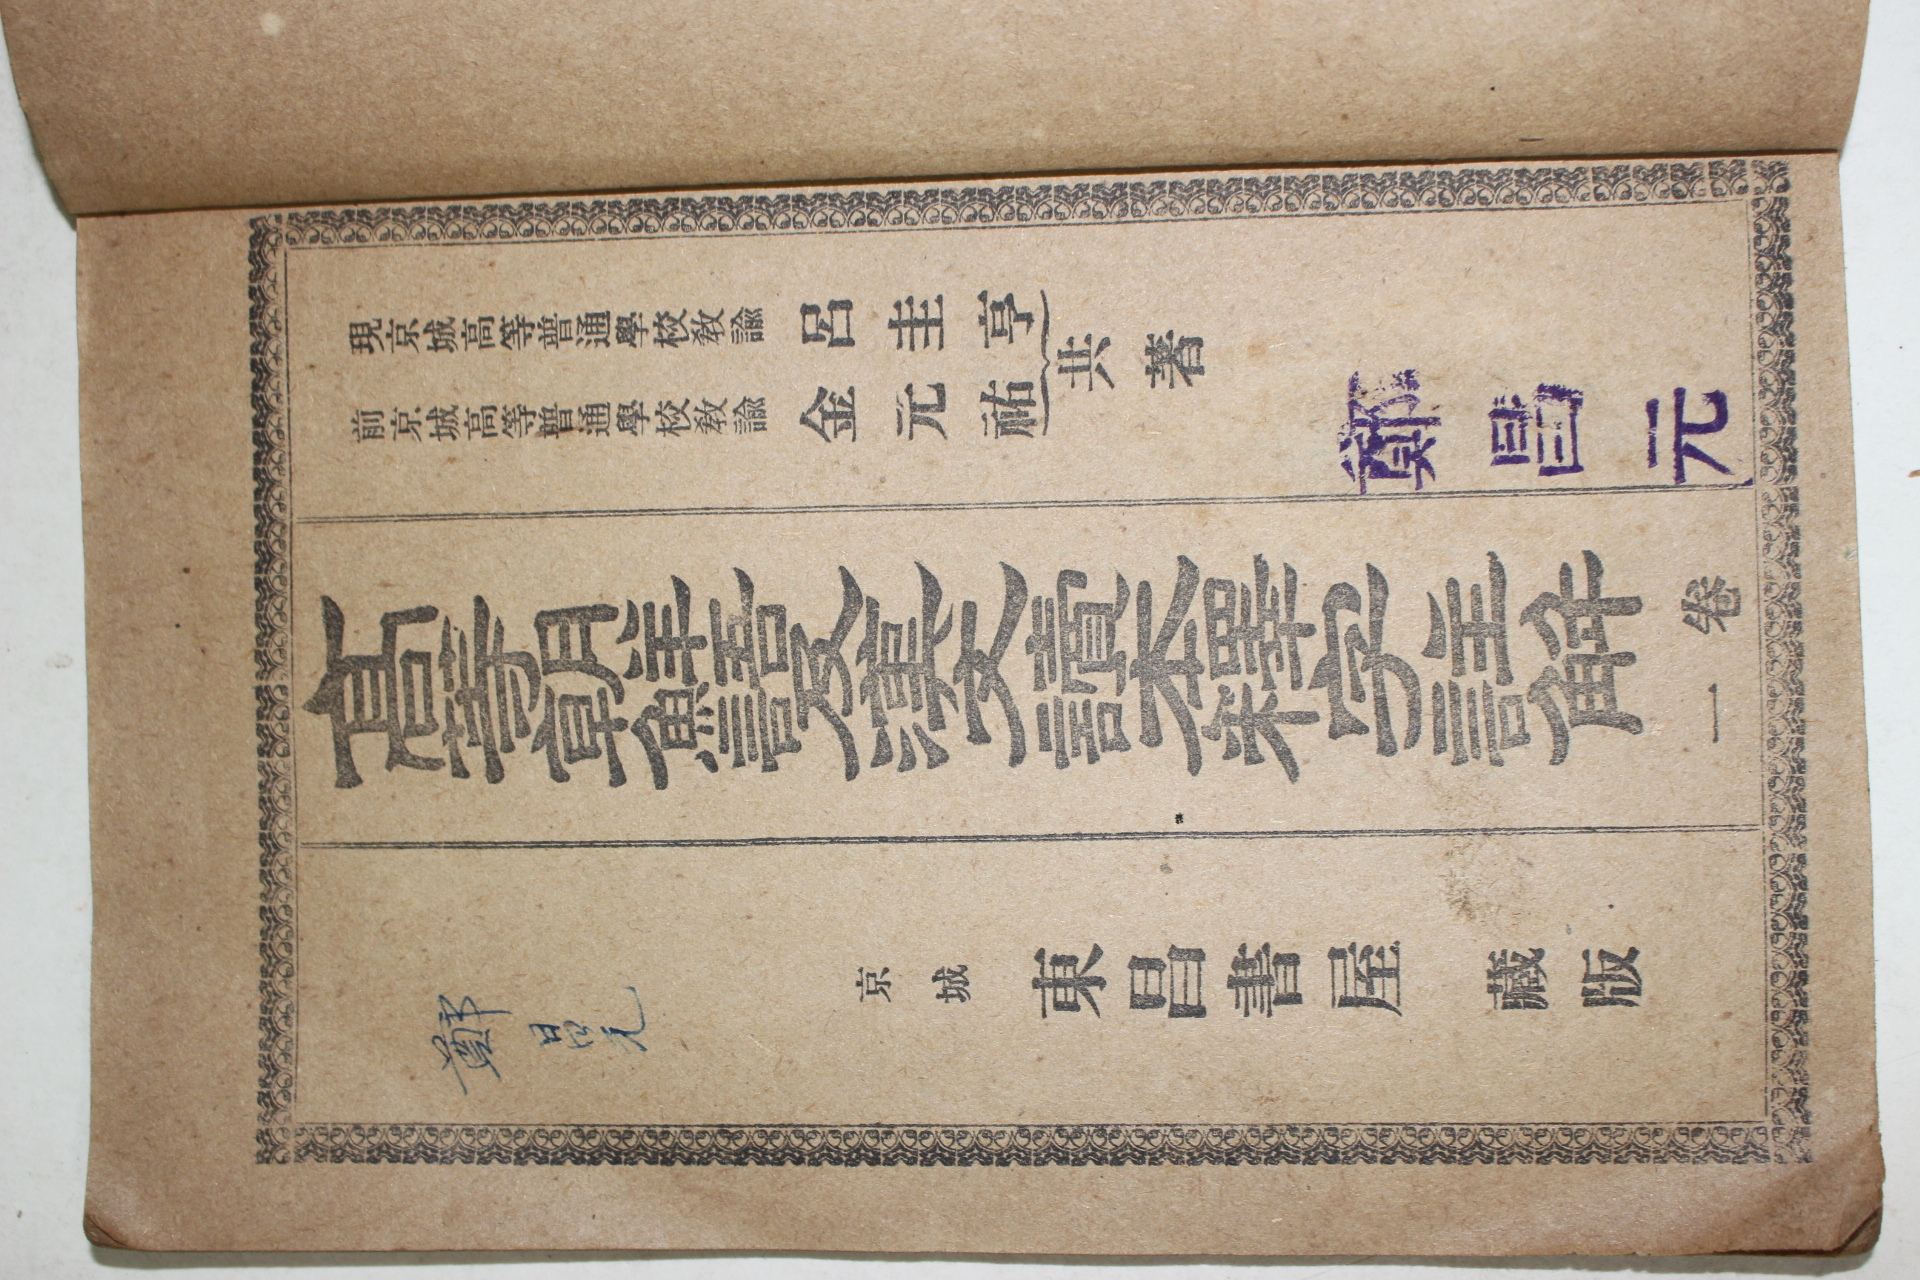 現京城高等普通學校教諭 呂圭亨
前京城高等普通學校教諭 金元祐
共著
鄭昌元
高等朝鮮語及漢文讀本釋字註解 卷一
京城 東昌書屋 藏版
鄭昌元